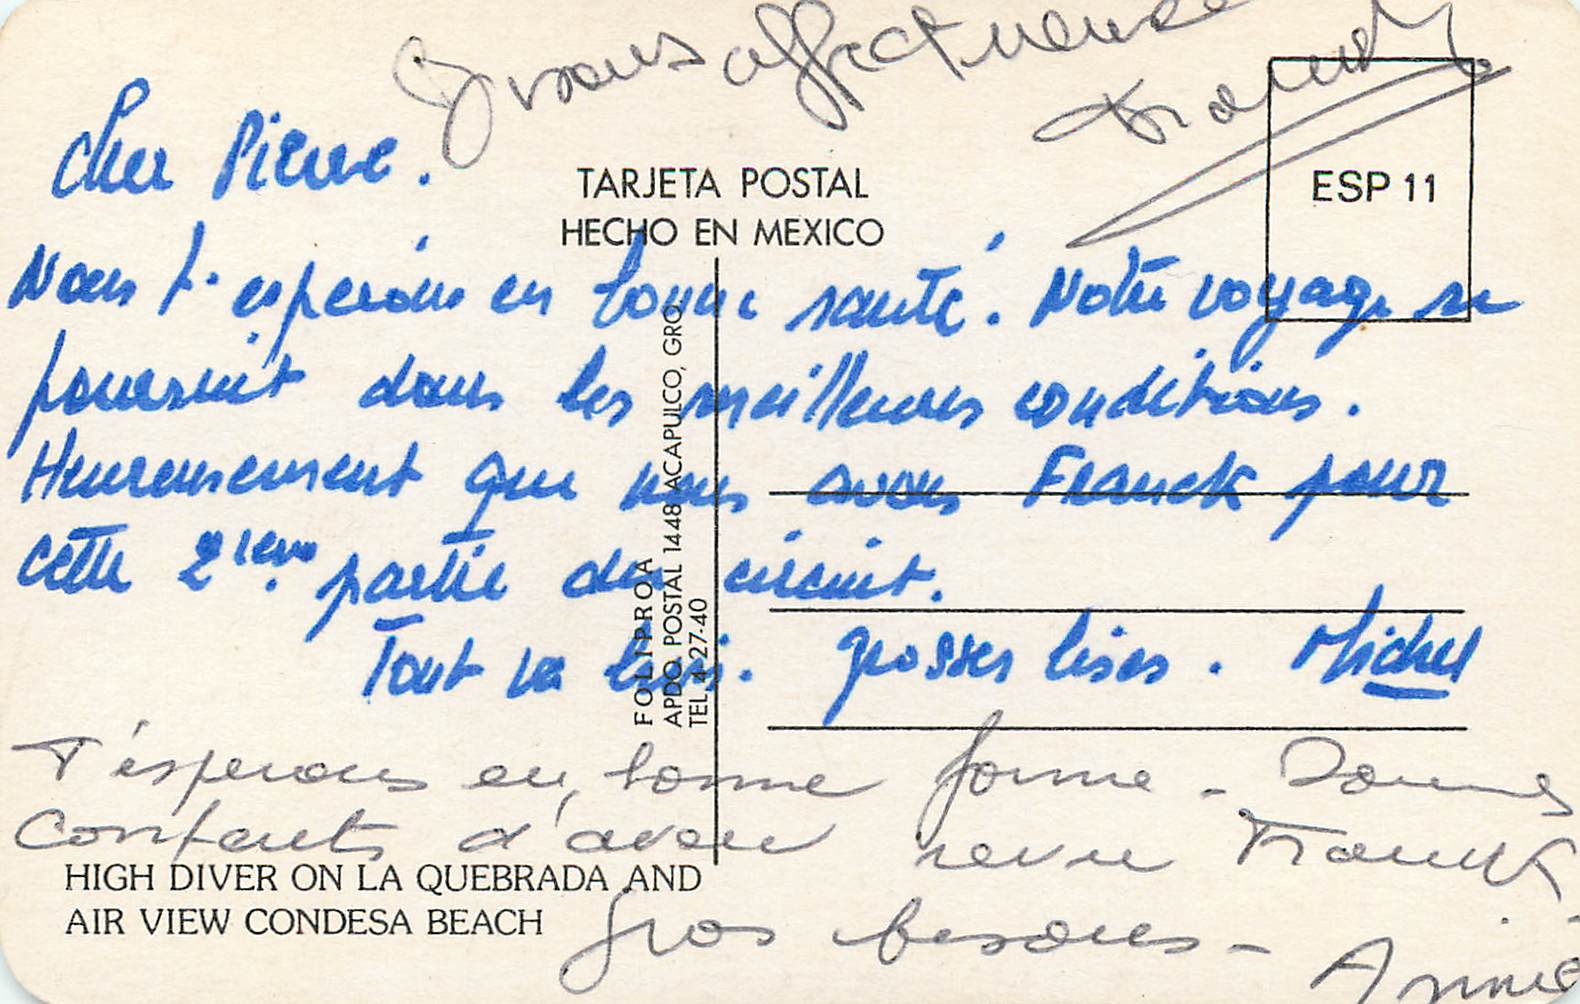 Bisous affectueux
Franck
Cher Pierre.
TARJETA POSTAL
HECHO EN MEXICO
ESP 11
Nous t'espérons en bonne santé. Notre voyage se
poursuit dans les meilleures conditions.
Heureusement que nous avons Franck pour
cette 2ième partie du circuit.
Tout va bien. grosses bises. Michel
FOLIPROA
APDO. POSTAL 1448 ACAPULCO, GRO.
TEL. 4-27-40
T'espérons en bonne forme - Sommes
Contents d'avoir revu Franck
HIGH DIVER ON LA QUEBRADA AND
AIR VIEW CONDESA BEACH
Gros baisers - Annie